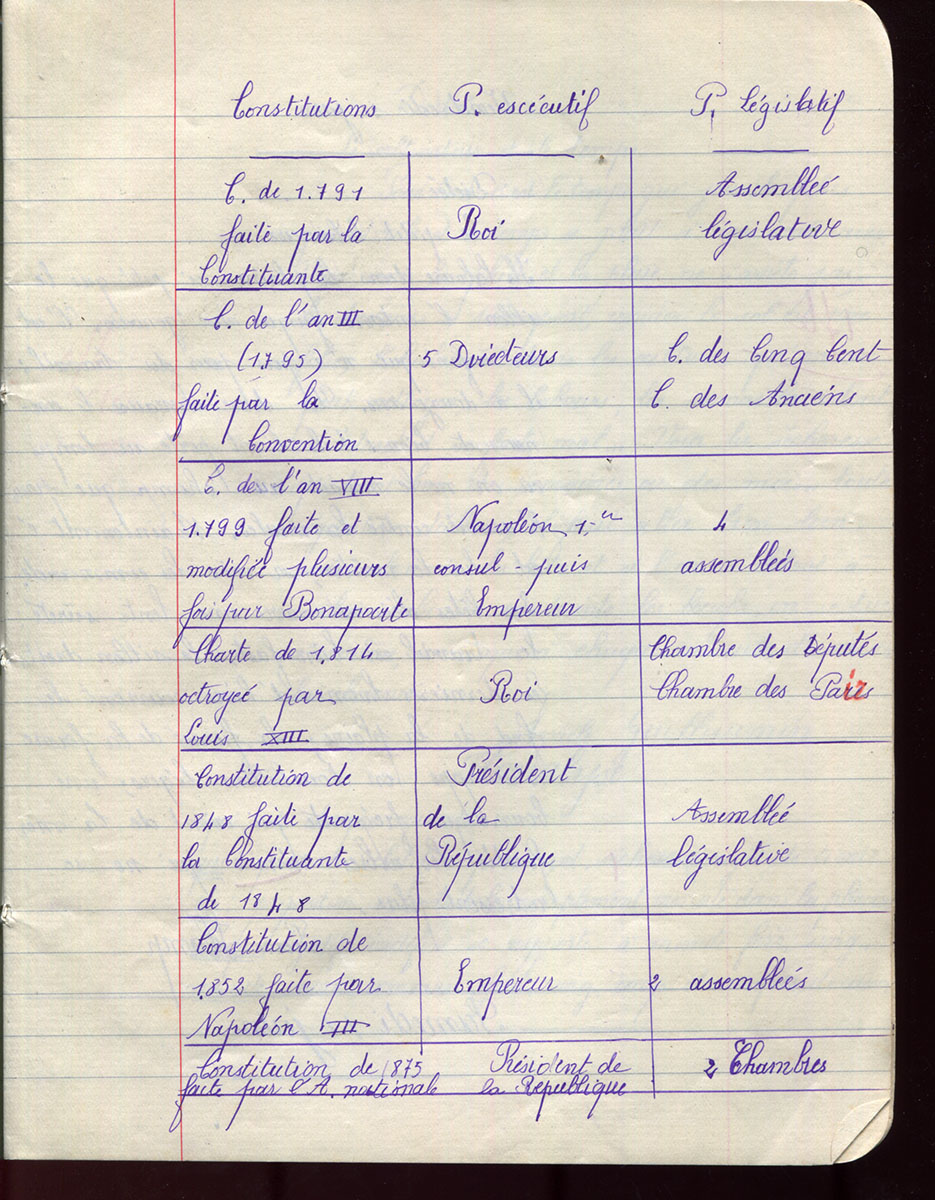 Constitutions P. escécutif P. Législatif
C. de 1.791
faite par la
Constituante
Roi
Assembleé
législative
C. de l'an III
(1.795)
faite par la
Convention
5 Directeurs
C. des Cinq Cent
C. des Anciens
C. de l'an VIII
1.799 faite et
modifiée plusieurs
fois par Bonaparte
Napoléon 1.er
consul - puis
Empereur
4
assembleés
Charte de 1.814
octroyeé par
Louis XIII
Roi
Chambre des Députés
Chambre des Pairs
Constitution de
1848 faite par
la Constituante
de 1848
Président
de la
République
Assembleé
législative
Constitution de
1.852 faite par
Napoléon III
Empereur
2 assembleés
Constitution de 1875
faite par l'A. nationale
Président de
la République
2 Chambres